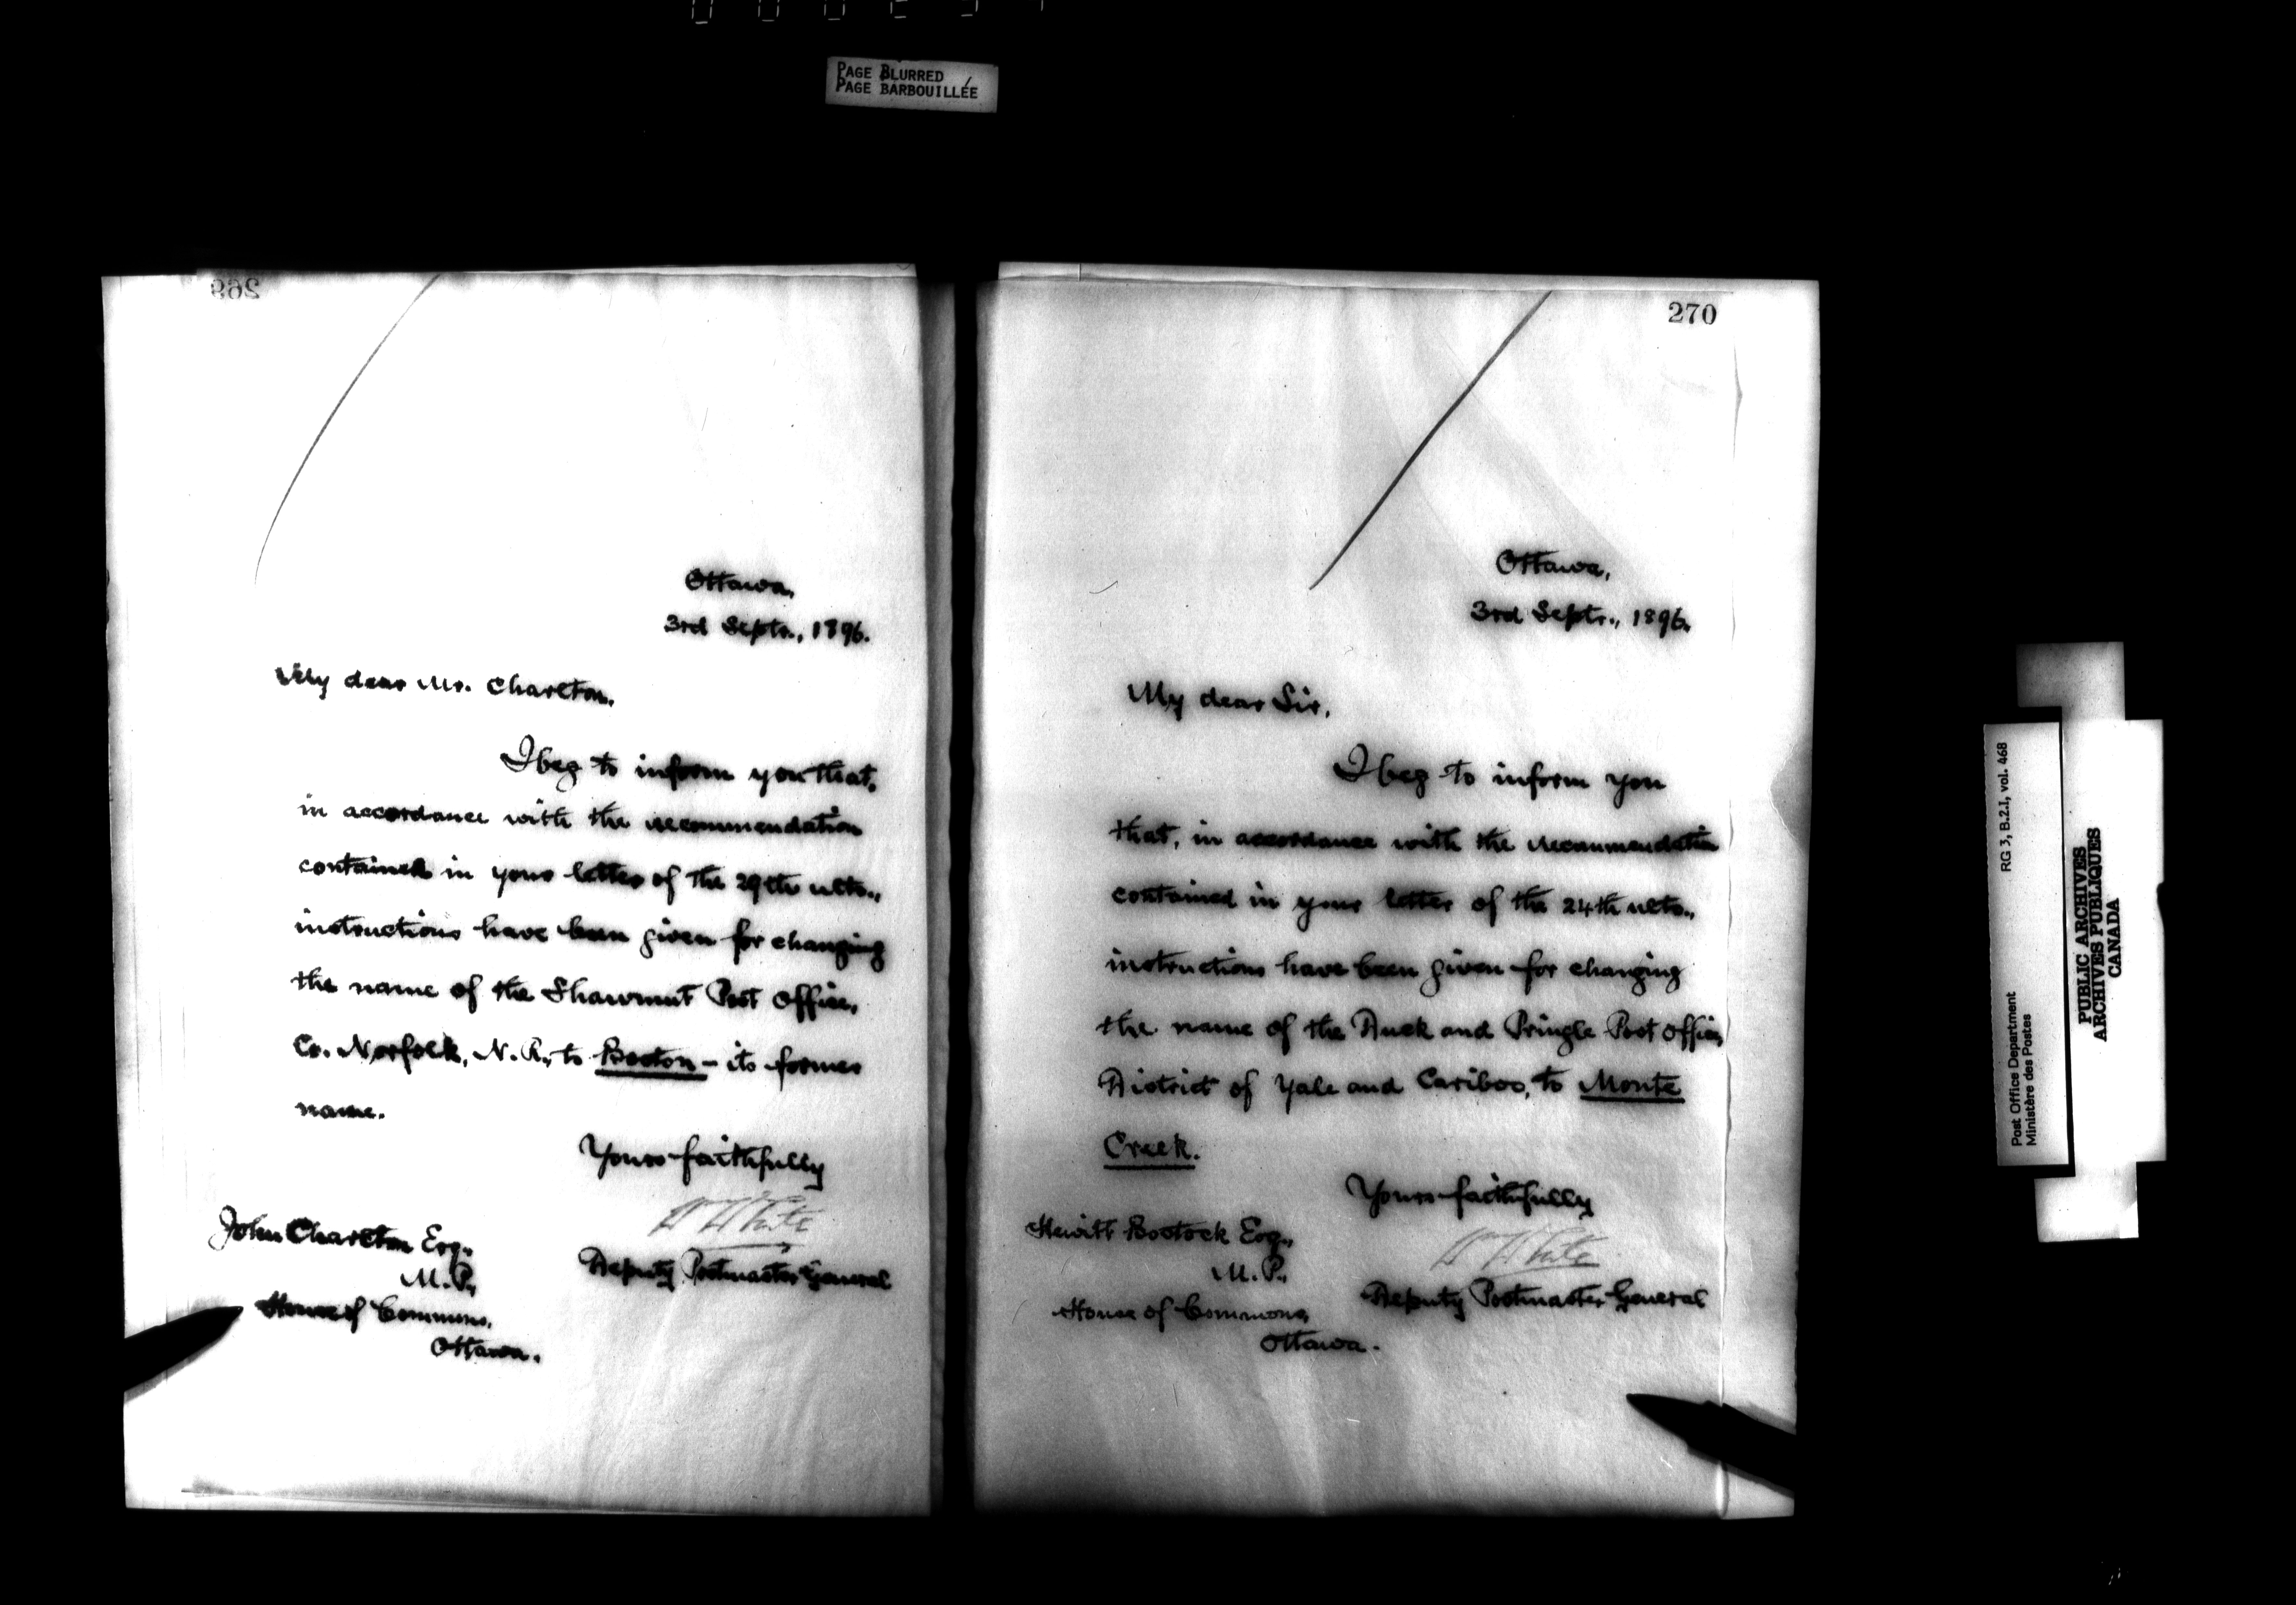 PAGE BLURRED
PAGE BARBOUILLÉE
269
Ottawa,
3rd Septr., 1896.
My dear Mr. Charlton,
I beg to inform you that,
in accordance with the recommendation
contained in your letter of the 29th ulto.,
instructions have been given for changing
the name of the Shawmut Post Office,
Co. Norfolk, N. R., to Boston - its former
name.
Yours faithfully
Wm White
Deputy Postmaster General
John Charlton Esq.,
M. P.,
House of Commons,
Ottawa.
270
Ottawa,
3rd Septr., 1896.
My dear Sir,
I beg to inform you
that, in accordance with the recommendation
contained in your letter of the 24th ulto.,
instructions have been given for changing
the name of the Duck and Pringle Post Office,
District of Yale and Cariboo, to Monte
Creek.
Yours faithfully
Wm White
Deputy Postmaster General
Hewitt Bostock Esq.,
M. P.,
House of Commons,
Ottawa.
Post Office Department RG 3, B.2.I, vol. 468
Ministère des Postes
PUBLIC ARCHIVES
ARCHIVES PUBLIQUES
CANADA